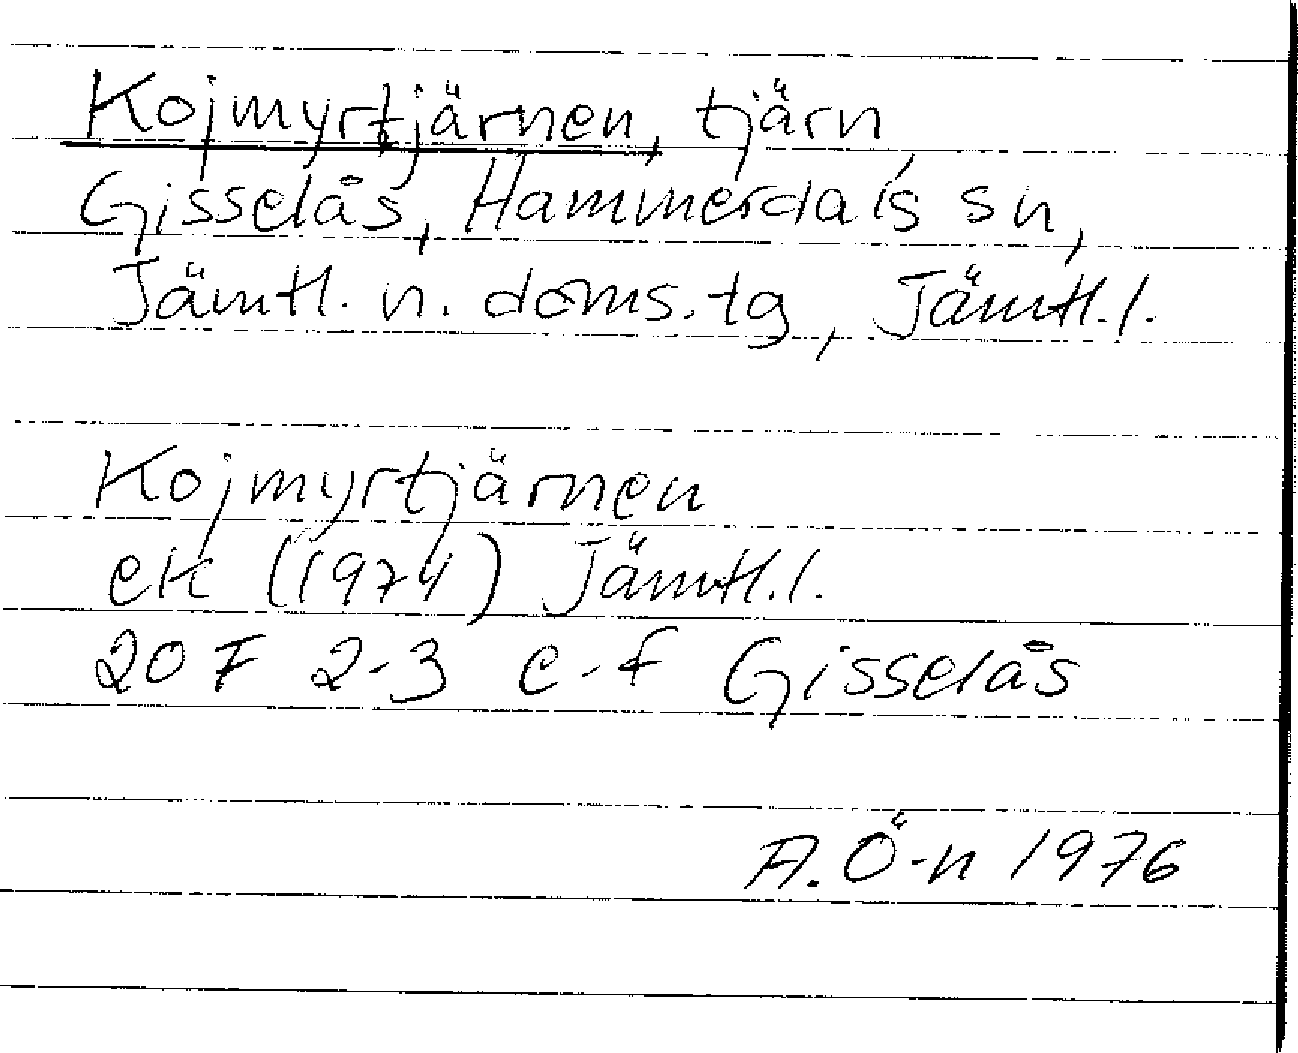 Kojmyrtjärnen, tjärn,
Gisselås, Hammerdals sn,
Jämtl. n. doms. tg, Jämtl. l.
Kojmyrtjärnen
ek (1974) Jämtl. l.
20 F 2-3 e-f Gisselås
A. Ö-n 1976